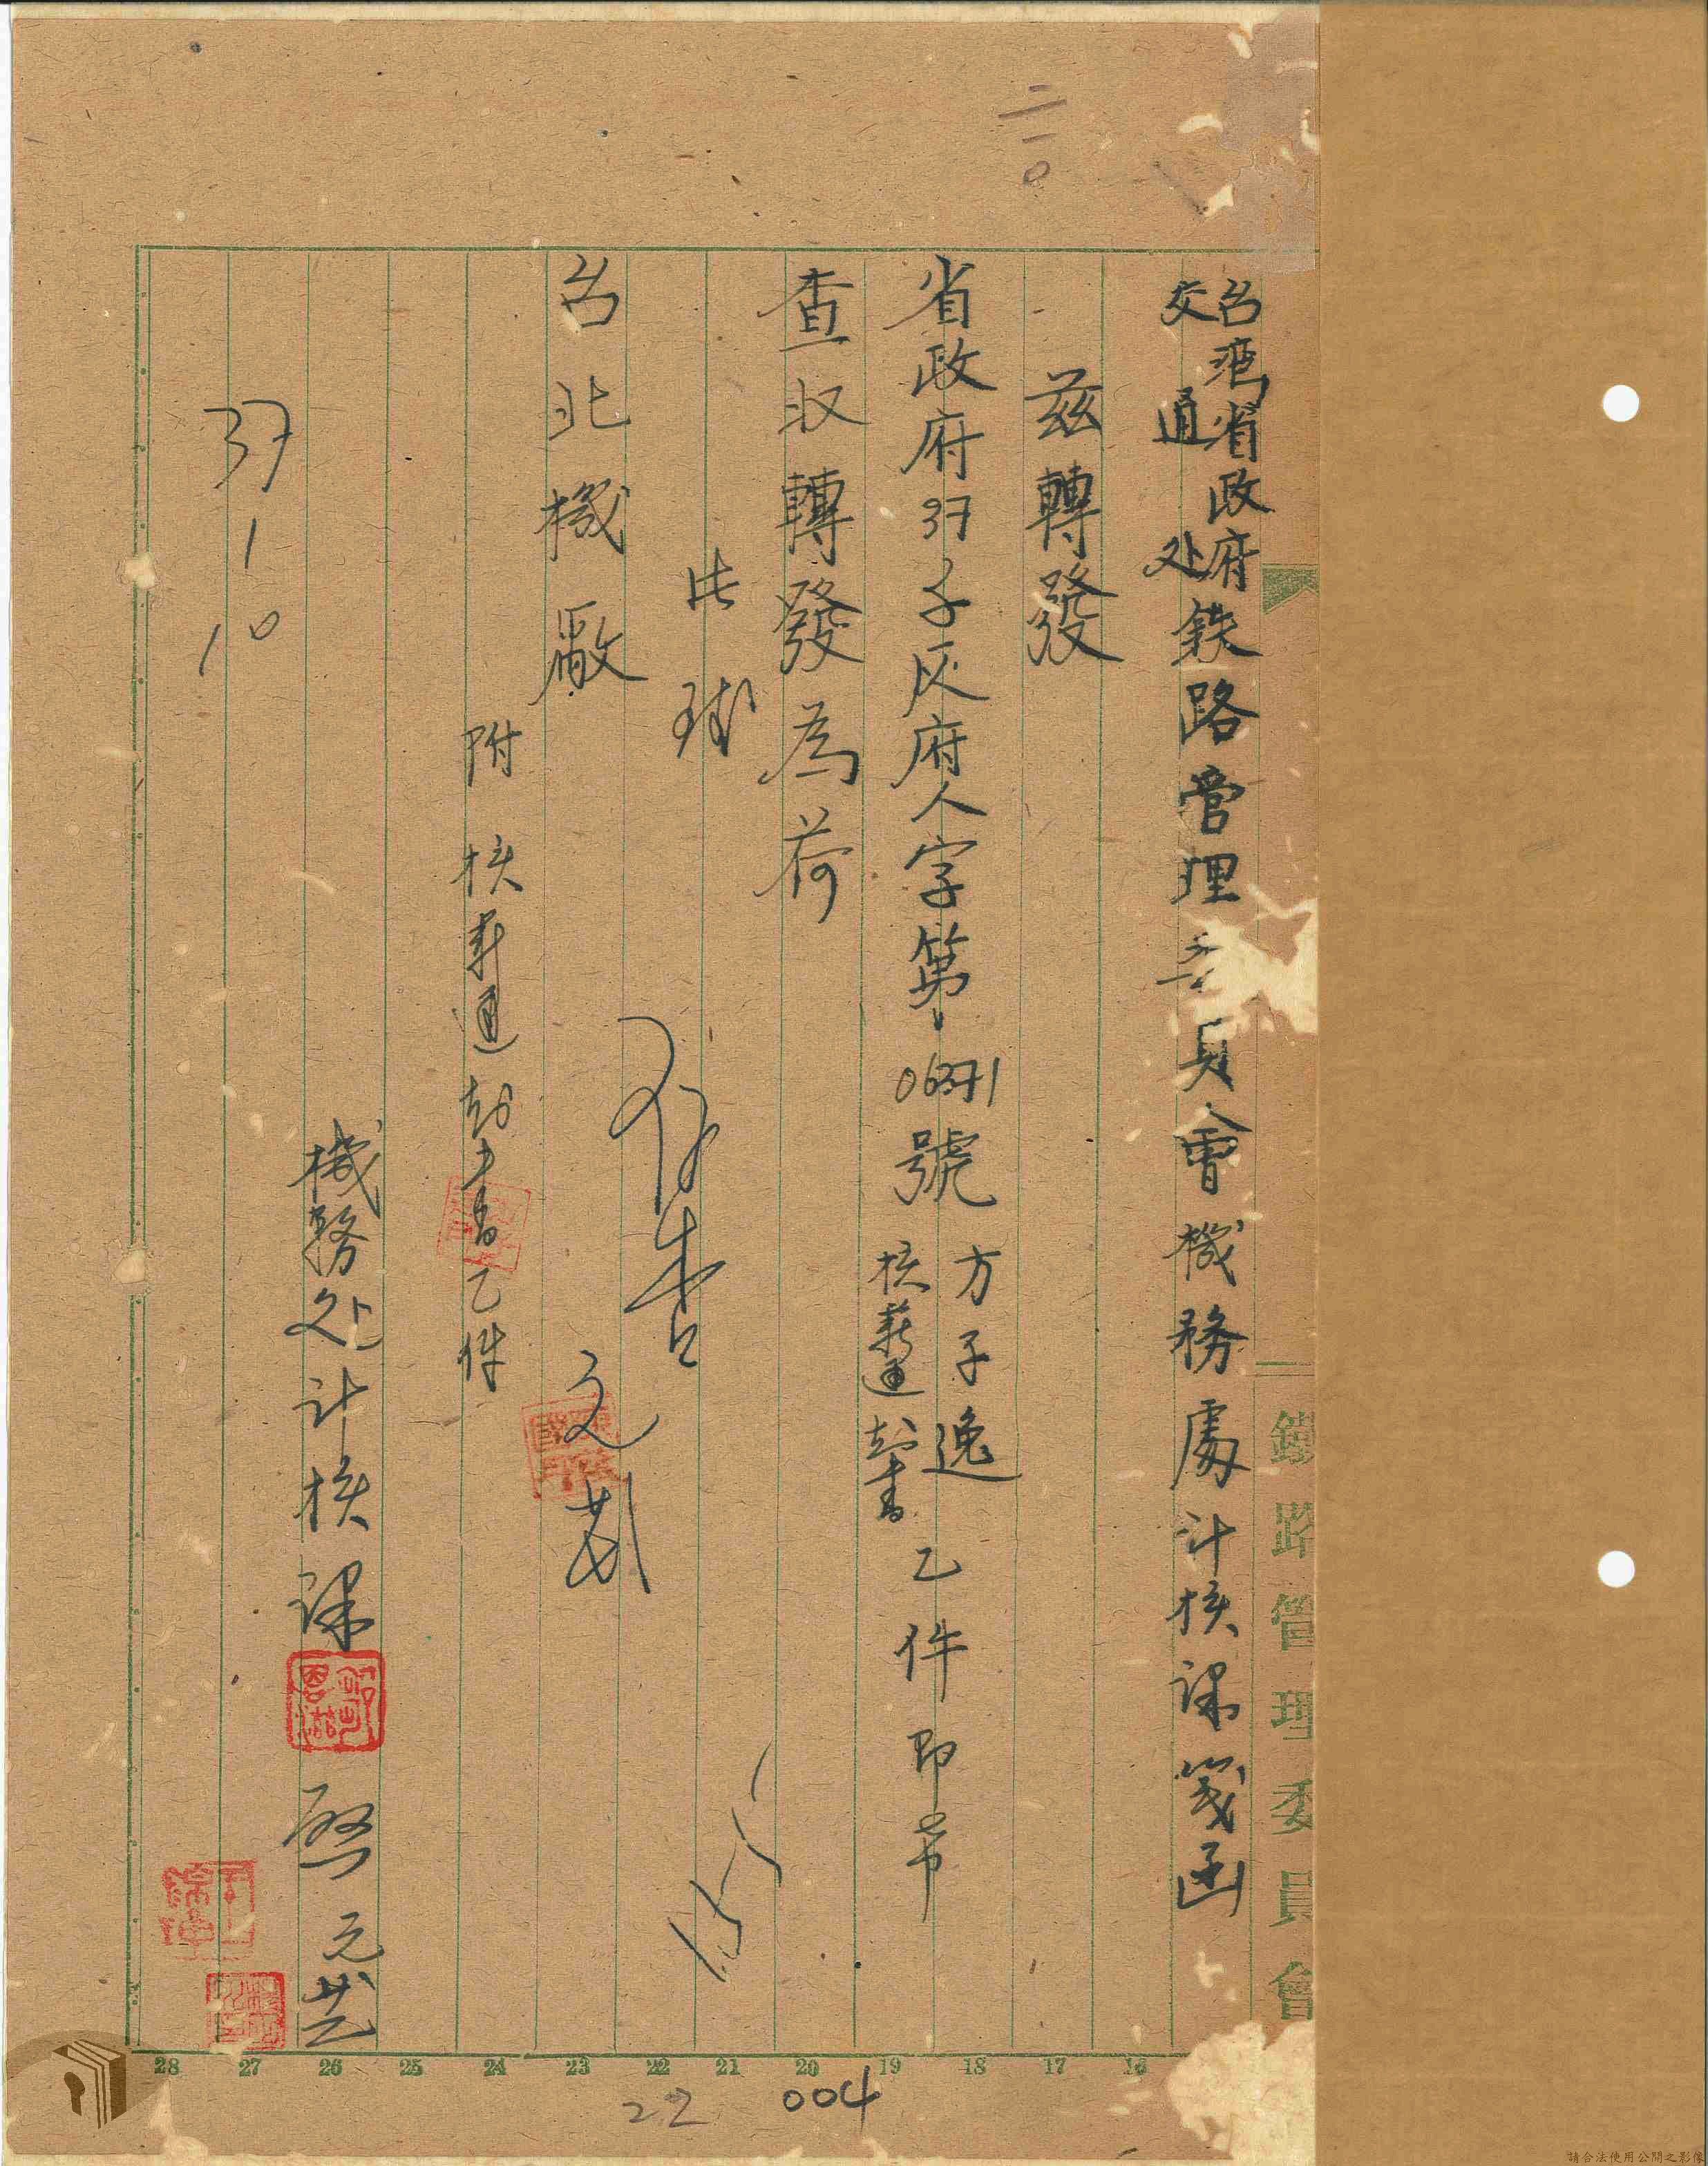 二
一
0
鐵路管理委員會
台湾省政府
交通处
鉄路管理委員會機務處计核课笺函
兹轉發
省政府37子灰府人字第06371號
方子逸
核薪通知書
乙件即希
查收轉發為荷
此致
台北機廠
附核薪通知书乙件
機務处计核课
啓
元廿一
37
1
10
16
17
18
19
20
21
22
23
24
25
26
27
28
22
004
請合法使用公開之影像